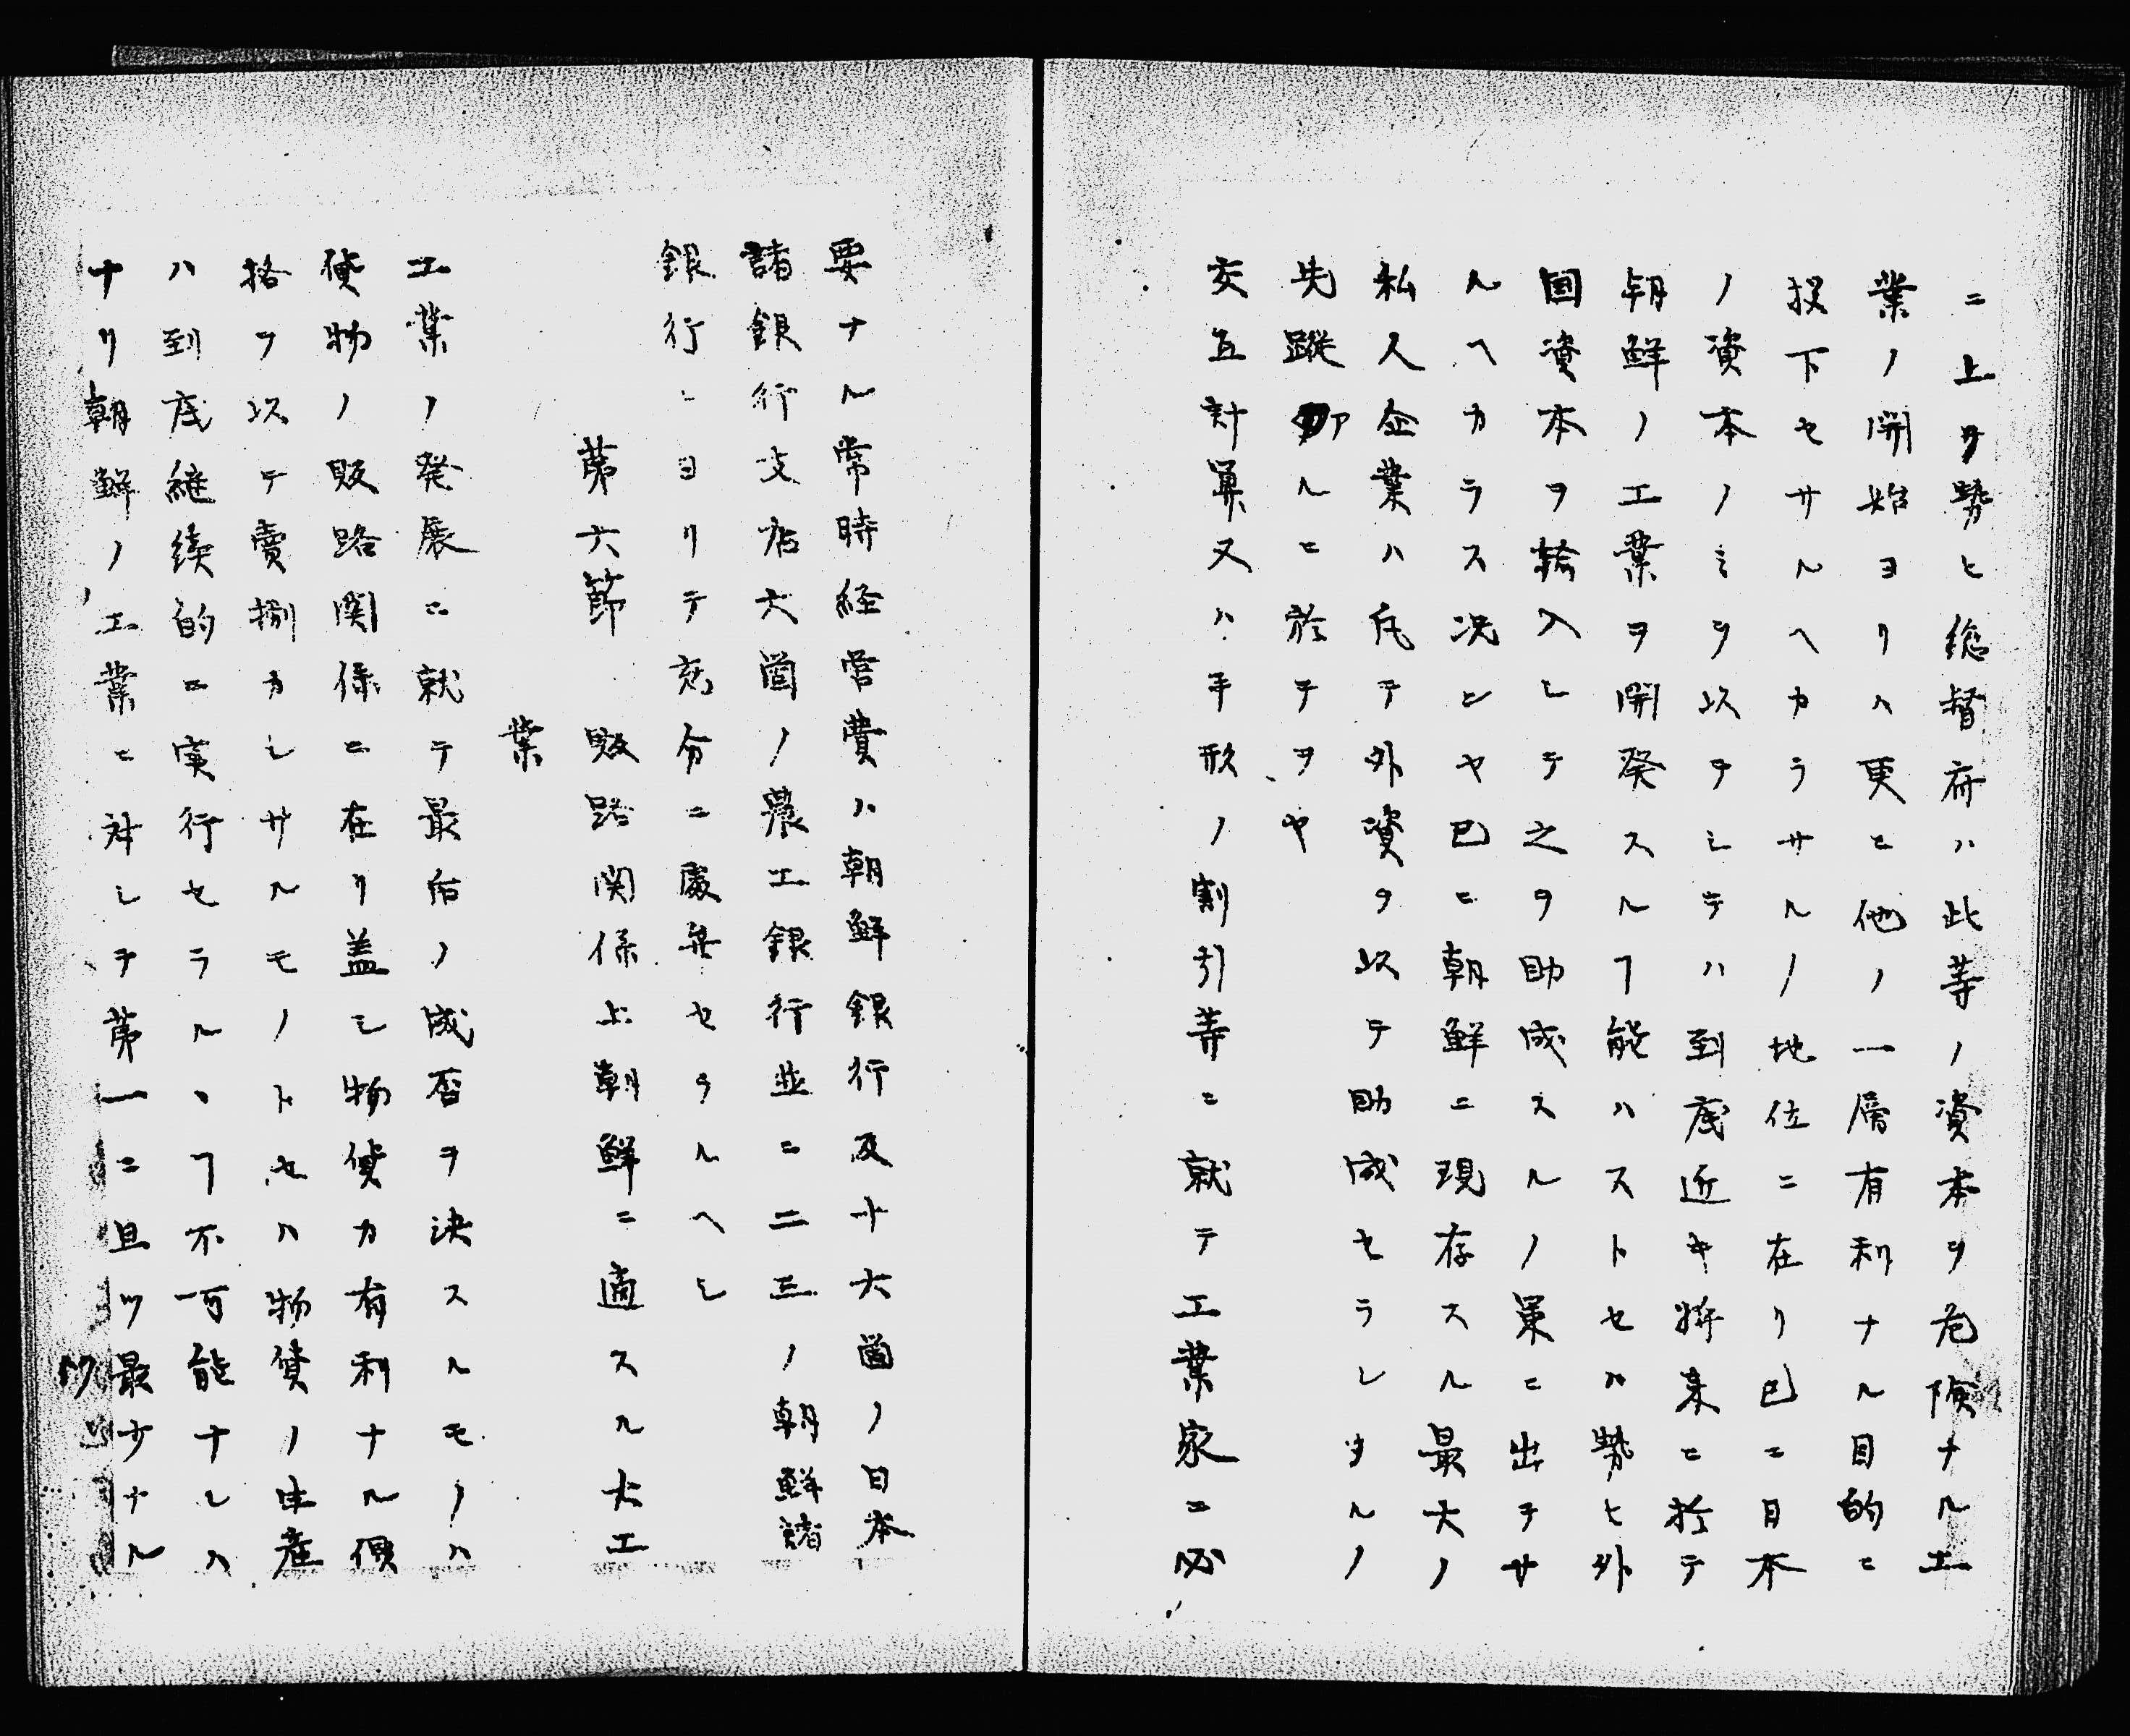 ニ上ヲ勢ヒ総督府ハ此等ノ資本ヲ危険ナル工
業ノ開始ヨリハ更ニ他ノ一層有利ナル目的ニ
投下セサルヘカラサルノ地位ニ在リ已ニ日本
ノ資本ノミヲ以テシテハ到底近キ将来ニ於テ
朝鮮ノ工業ヲ開発スルヿ能ハストセハ勢ヒ外
国資本ヲ輸入シテ之ヲ助成スルノ策ニ出テサ
ルヘカラス況ンヤ已ニ朝鮮ニ現存スル最大ノ
私人企業ハ凡テ外資ヲ以テ助成セラレタルノ
先蹤アルニ於テヲヤ
交互計算又ハ手形ノ割引等ニ就テ工業家ニ必
要ナル常時経営費ハ朝鮮銀行及十六箇ノ日本
諸銀行支店六箇ノ農工銀行並ニ二三ノ朝鮮諸
銀行ニヨリテ充分ニ處弁セラルヘシ
第六節 販路関係上朝鮮ニ適スル大工
業
工業ノ発展ニ就テ最后ノ成否ヲ決スルモノハ
貨物ノ販路関係ニ在リ蓋シ物貨カ有利ナル價
格ヲ以テ賣捌カレサルモノトセハ物貨ノ生産
ハ到底継続的ニ実行セラルヽヿ不可能ナレハ
ナリ朝鮮ノ工業ニ対シテ第一ニ且ツ最少ナル